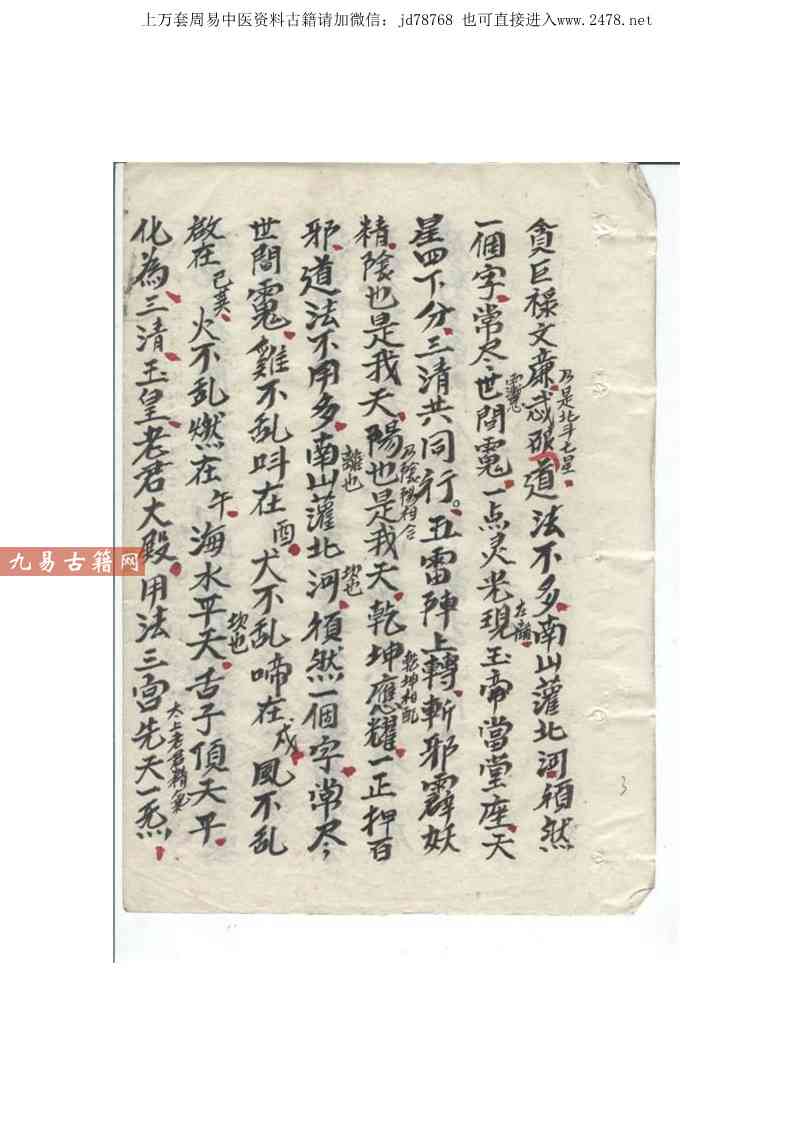 上万套周易中医资料古籍请加微信：jd78768 也可直接进入www.2478.net
貪巨禄文廉武破道法不多南山灌北河須然
乃是北斗七星
一個字常尽世間霓一点灵光現玉帝當堂座天
星四下分三清共同行。五雷陣上轉斬邪霹妖
乃陰陽相合
精陰也是我天陽也是我天乾坤應耀一正押百
乾坤相配
邪道法不用多南山灌北河須然一個字常尽
離也
坎也
世間霓雞不乱呌在酉犬不乱啼在戍風不乱
啟在巳亥火不乱燃在午海水平天舌子頂天平
坎也
化為三清玉皇老君大殿用法三宫先天一炁
太上老君精氣
九易古籍网
3